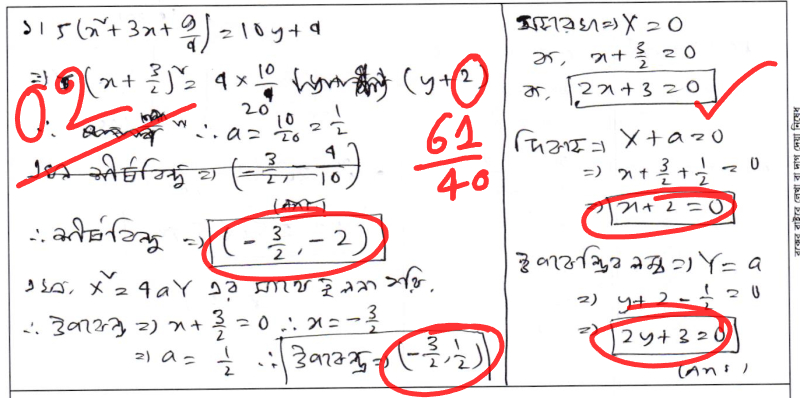 ১। 5(x² + 3x + 9/4) = 10y + 9
⇒ 5(x + 3/2)² = 4 × 10/4 (y + 2)
20
02
∴ a = 10/20 = 1/2
61/40
শীর্ষবিন্দু ⇒ (-3/2, -9/10)
(Ans)
∴ শীর্ষবিন্দু ⇒ (-3/2, -2)
এখন, X² = 4aY এর সাথে তুলনা করি,
∴ উপকেন্দ্র ⇒ x + 3/2 = 0 ∴ x = -3/2
⇒ a = 1/2 ∴ উপকেন্দ্র ⇒ (-3/2, 1/2)
⇒ X = 0
বা, x + 3/2 = 0
বা, 2x + 3 = 0
⇒ X + a = 0
⇒ x + 3/2 + 1/2 = 0
⇒ x + 2 = 0
উপকেন্দ্রিক লম্ব ⇒ Y = a
⇒ y + 2 - 1/2 = 0
⇒ 2y + 3 = 0
(Ans:)
বক্সের বাইরে লেখা বা দাগ দেয়া নিষেধ